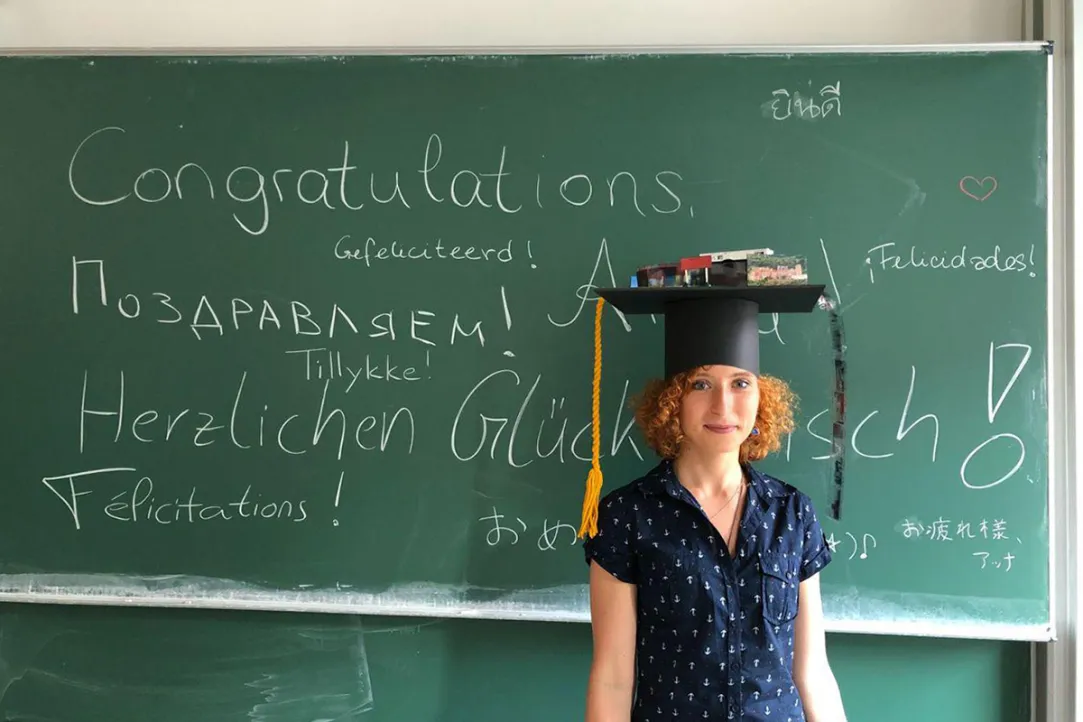 ยินดี
Congratulations,
Gefeliciteerd!
¡Felicidades!
Поздравляем!
Tillykke!
Herzlichen
Félicitations!
おめ
*)♪
お疲れ様、
アンナ